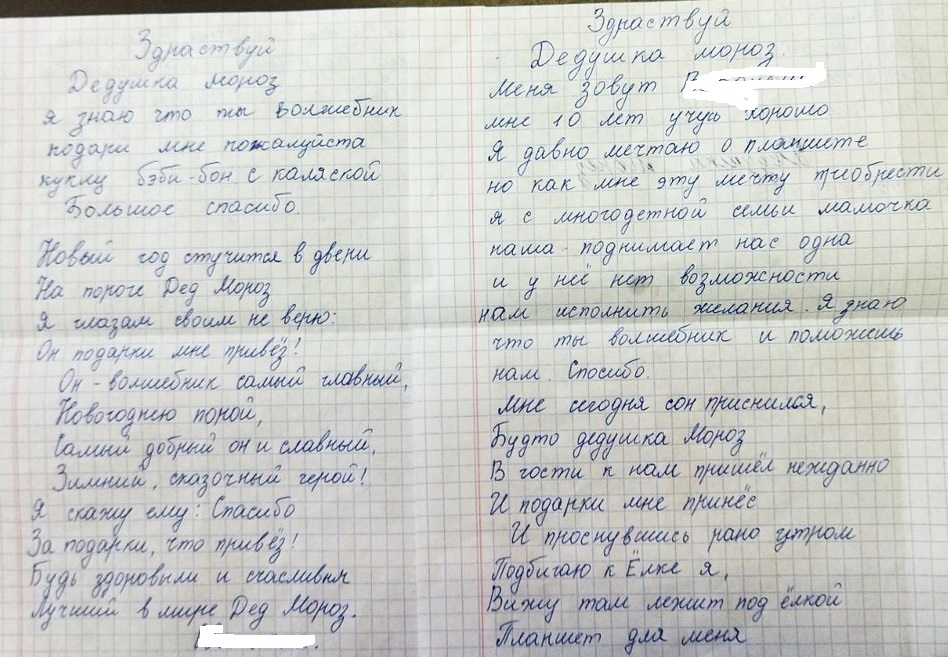 Здраствуй
Дедушка мороз
я знаю что ты волшебник
подари мне пожалуйста
куклу бэби-бон с каляской
Большое спасибо.
Новый год стучится в двери
На пороге Дед Мороз
Я глазам своим не верю:
Он подарки мне привёз!
Он - волшебник самый главный,
Новогоднею порой,
Самый добрый он и славный,
Зимний, сказочный герой!
Я скажу ему: Спасибо
За подарки, что привёз!
Будь здоровым и счасливым
Лучший в мире Дед Мороз.
Здраствуй
Дедушка мороз.
Меня зовут
мне 10 лет учусь хорошо
Я давно мечтаю о планшете
но как мне эту мечту приобрести
я с многодетной семьи мамочка
наша поднимает нас одна
и у неё нет возможности
нам исполнить желания. Я знаю
что ты волшебник и поможешь
нам. Спосибо.
Мне сегодня сон приснился,
Будто дедушка Мороз
В гости к нам пришёл нежданно
И подарки мне принёс
И проснувшись рано утром
Подбигаю к Ёлке я,
Вижу там лежит под ёлкой
Планшет для меня